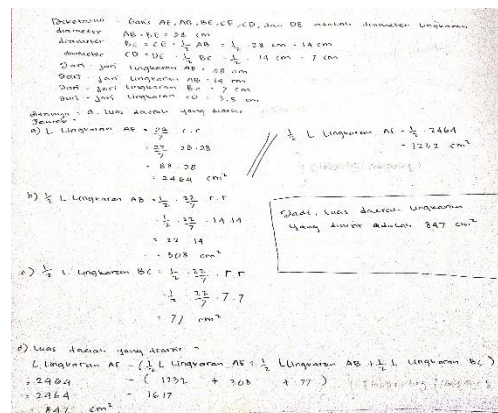 Diketahui : Garis AE, AB, BE, CE, CD, dan DE adalah diameter lingkaran
diameter AB = BE = 28 cm
diameter BC = CE = 1/2 AB = 1/2 . 28 cm = 14 cm
diameter CD = DE = 1/2 BC = 1/2 . 14 cm = 7 cm
Jari - jari lingkaran AE = 28 cm
Jari - jari lingkaran AB = 14 cm
Jari - jari lingkaran BC = 7 cm
Jari - jari lingkaran CD = 3,5 cm
Ditanya : a. Luas daerah yang diarsir
Jawab :
a) L Lingkaran AE = 22/7 . r . r
= 22/7 . 28 . 28
= 88 . 28
= 2464 cm²
1/2 L Lingkaran AE = 1/2 . 2464
= 1232 cm²
b) 1/2 L Lingkaran AB = 1/2 . 22/7 r . r
= 1/2 . 22/7 . 14 . 14
= 22 14
= 308 cm²
Jadi, luas daerah lingkaran
yang diarsir adalah 847 cm²
c) 1/2 L. Lingkaran BC = 1/2 . 22/7 . r . r
= 1/2 . 22/7 . 7 . 7
= 77 cm²
d) Luas daerah yang diarsir =
L Lingkaran AE - (1/2 L Lingkaran AE + 1/2 L Lingkaran AB + 1/2 L Lingkaran BC)
= 2464 - ( 1232 + 308 + 77 )
= 2464 - 1617
= 847 cm²